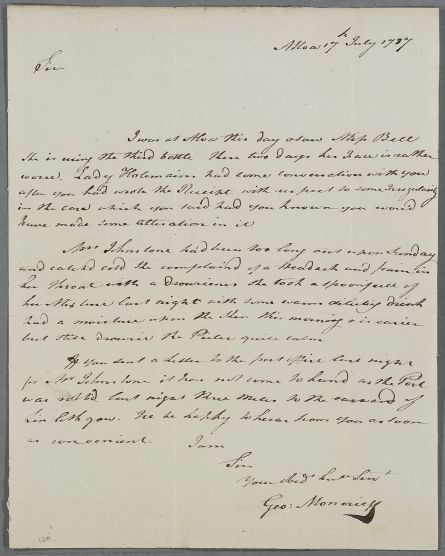 Alloa 17th July 1787
Sir
I was at Aloa this day & saw Miss Bell
She is using the third bottle these two days her Face is rather
worse. Lady Holemains had some conversation with you
after you had wrote the Receipt with respect to some Irregularity
in the case which you said had you known you would
have made some alteration in it
Mrs Johnstone had been too long out upon Sunday
and catchd cold she complaind of a Headach and pain in
her throat with a drowsiness she took a spoonfull of
her Mixture last night with some warm diluting drink
had a moisture upon the Skin this morning & is easier
but still drowsie the Pulse quite calm
If you sent a letter to the post office last night
for Mrs Johnstone it has not come to hand as the Post
was last night three miles to the eastward of
Linlithgow. I'le be happy to hear from you as soon
as convenient.
I am
Sir
Your Obedt hule Servt
Geo: Moncrieff